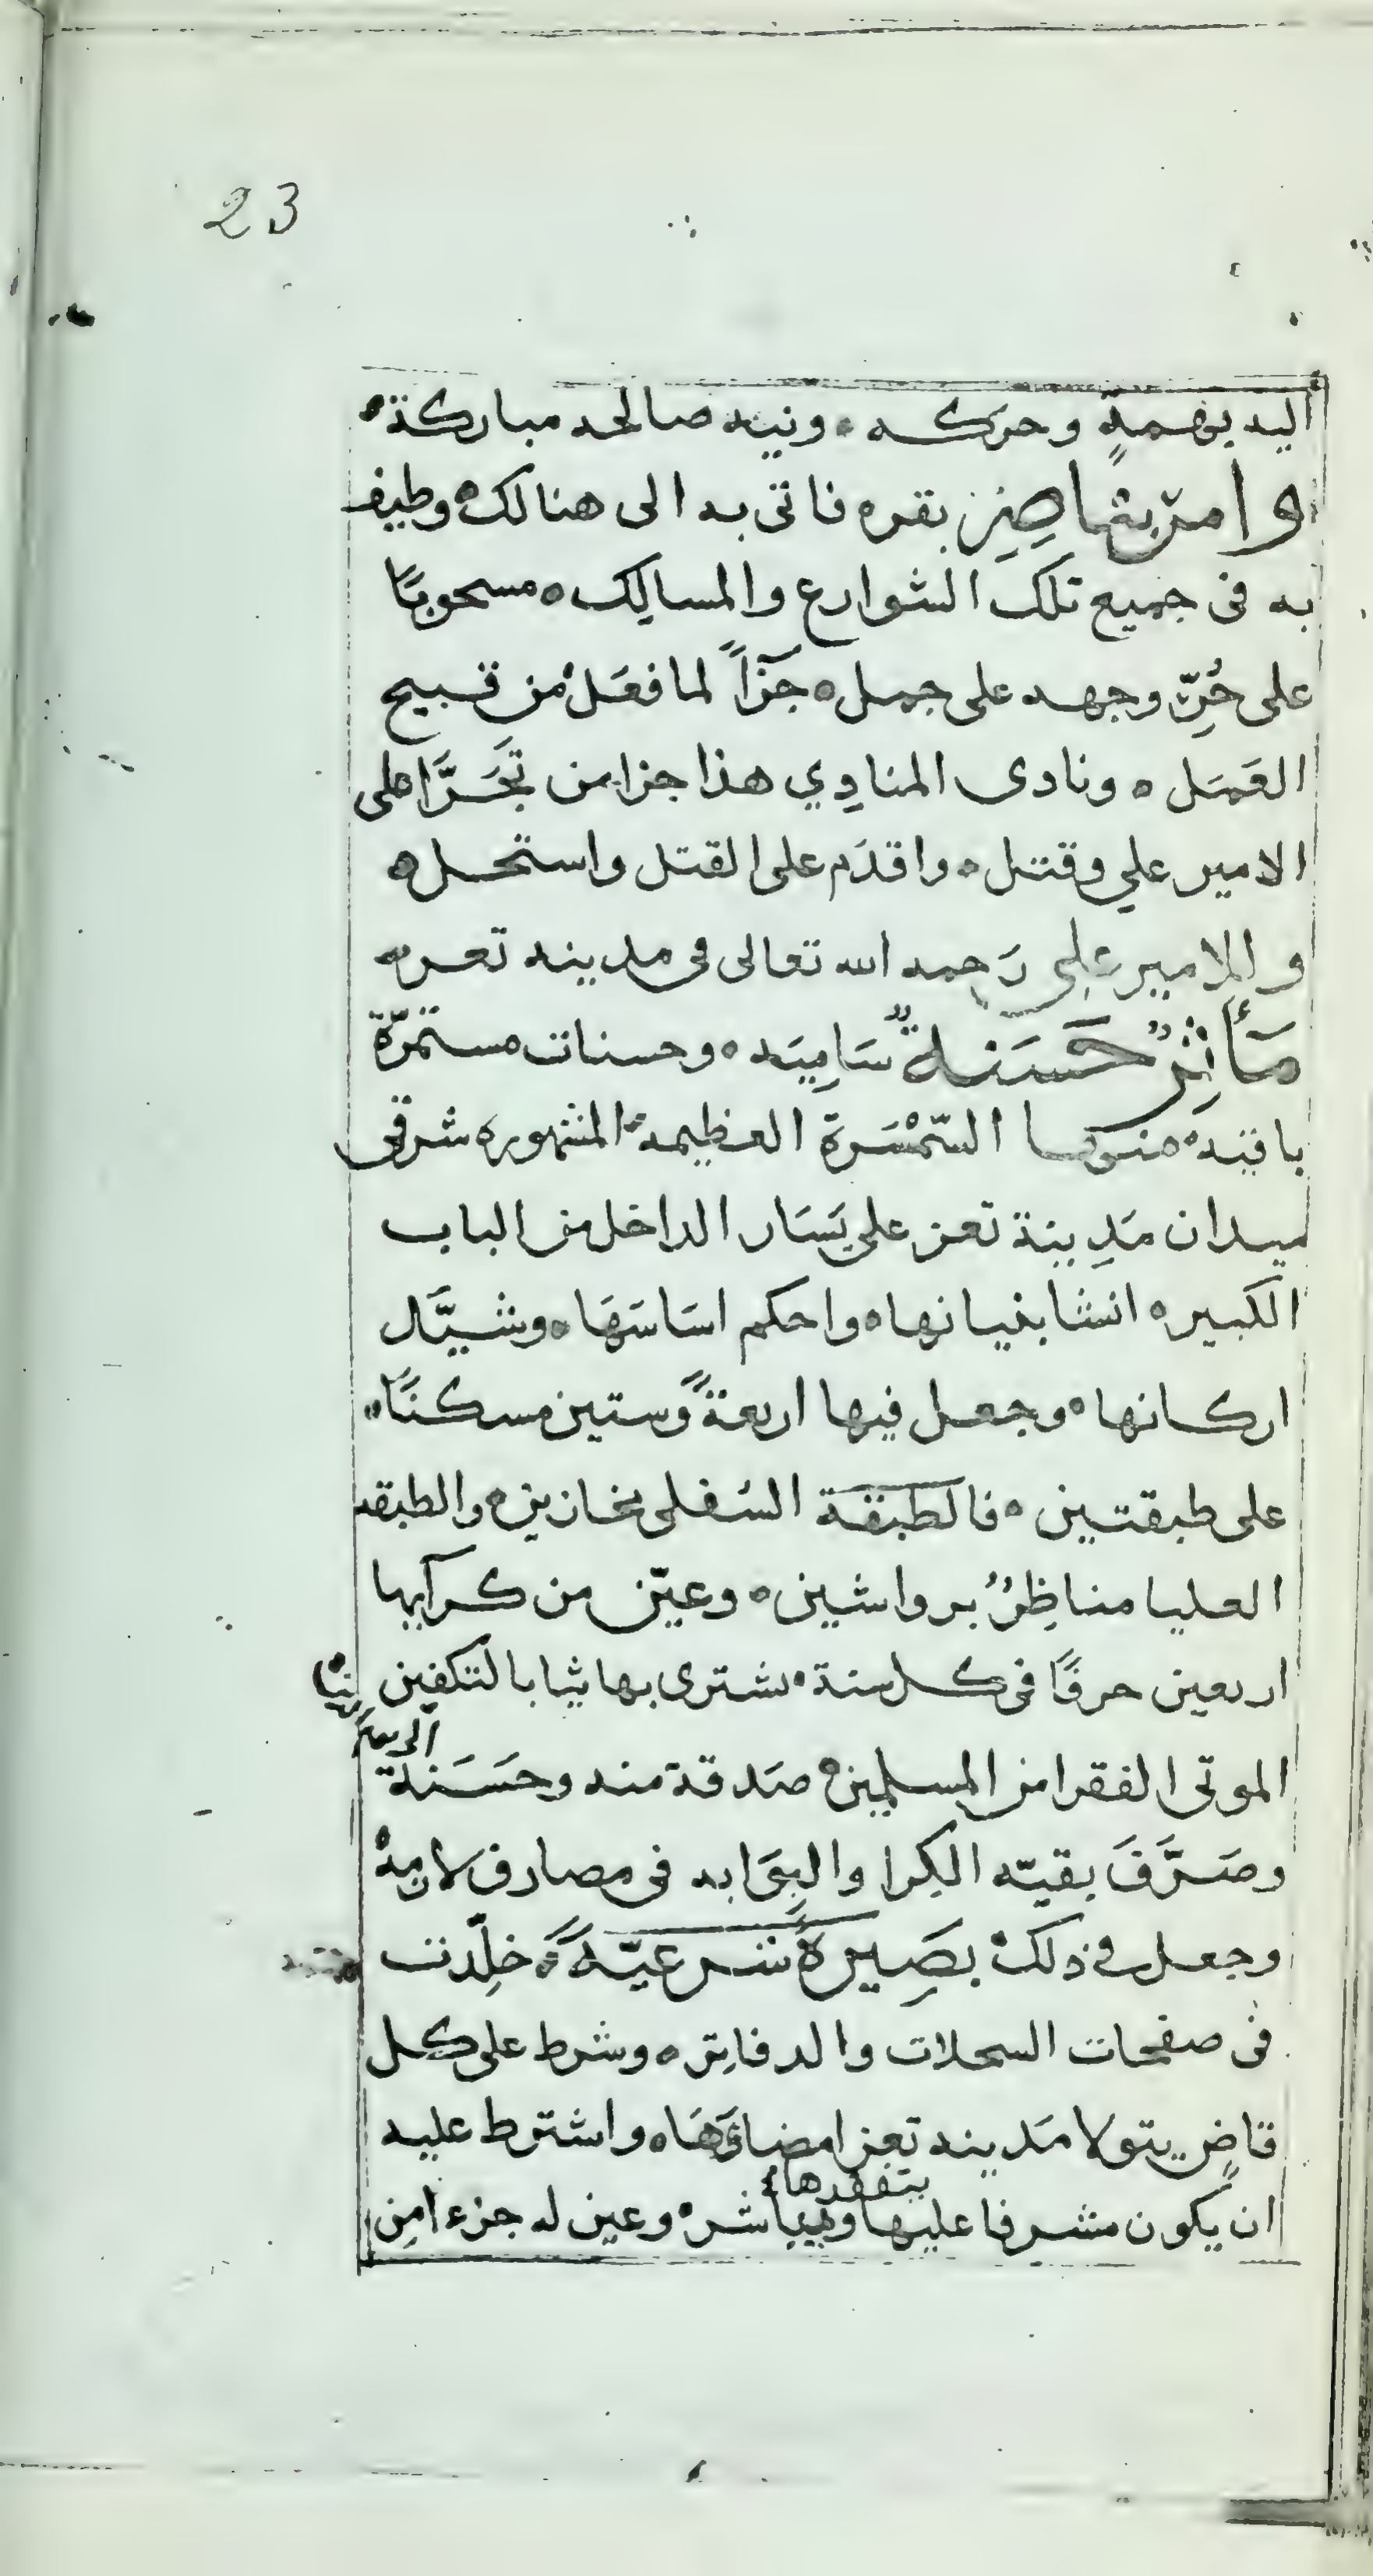 23
اليه بهمةٍ وحركه ونيه صالحه مباركة
وامر بقاصِرِ بقره فاتى به الى هنالك وطيف
به فى جميع تلك الشوارع والمسالِك مسحوبًا
على حُرِّ وجهه على جمل جَزآً لما فعَل من قبيح
العَمَل ونادى المنادِي هذا جزا من تجَرَّا على
الامير علي وقتل واقدَم على القتل واستحل
وللامير على رَحمه الله تعالى فى مدينه تعز
مَأثِرُ حَسَنةٌ سَامِيَه وحسنات مستمرّة
باقيه منها السَّمْسَرة العظيمه المشهوره شرقى
ميدان مَدِينة تعز على يَسَار الداخل من الباب
الكبير انشا بنيانها واحكم اسَاسَهَا وشيَّد
اركانها وجعل فيها اربعةً وستين مسكنًا
على طبقتين فالطبقة السُفلى مخازين والطبقه
العليا مناظِرُ برواشين وعيّن من كرآيها
اربعين حرفًا فى كل سنة يشترى بها ثيابا لتكفين
الموتى الفقرا من المسلمين صَدقة منه وحَسَنة
وصَرَّفَ بقيّه الكِرا والبِوَابه فى مصارف لازمه
وجعل فى ذلك بصِيرةً شرعيّةً خلِّدت
فى صفحات السجلات والدفاتِر وشرط على كل
قاضٍ يتولا مَدينه تعز امضاؤَهَا واشترط عليه
يتفقدها
ان يكون مشرفا عليها ويباشر وعين له جزءا مِن